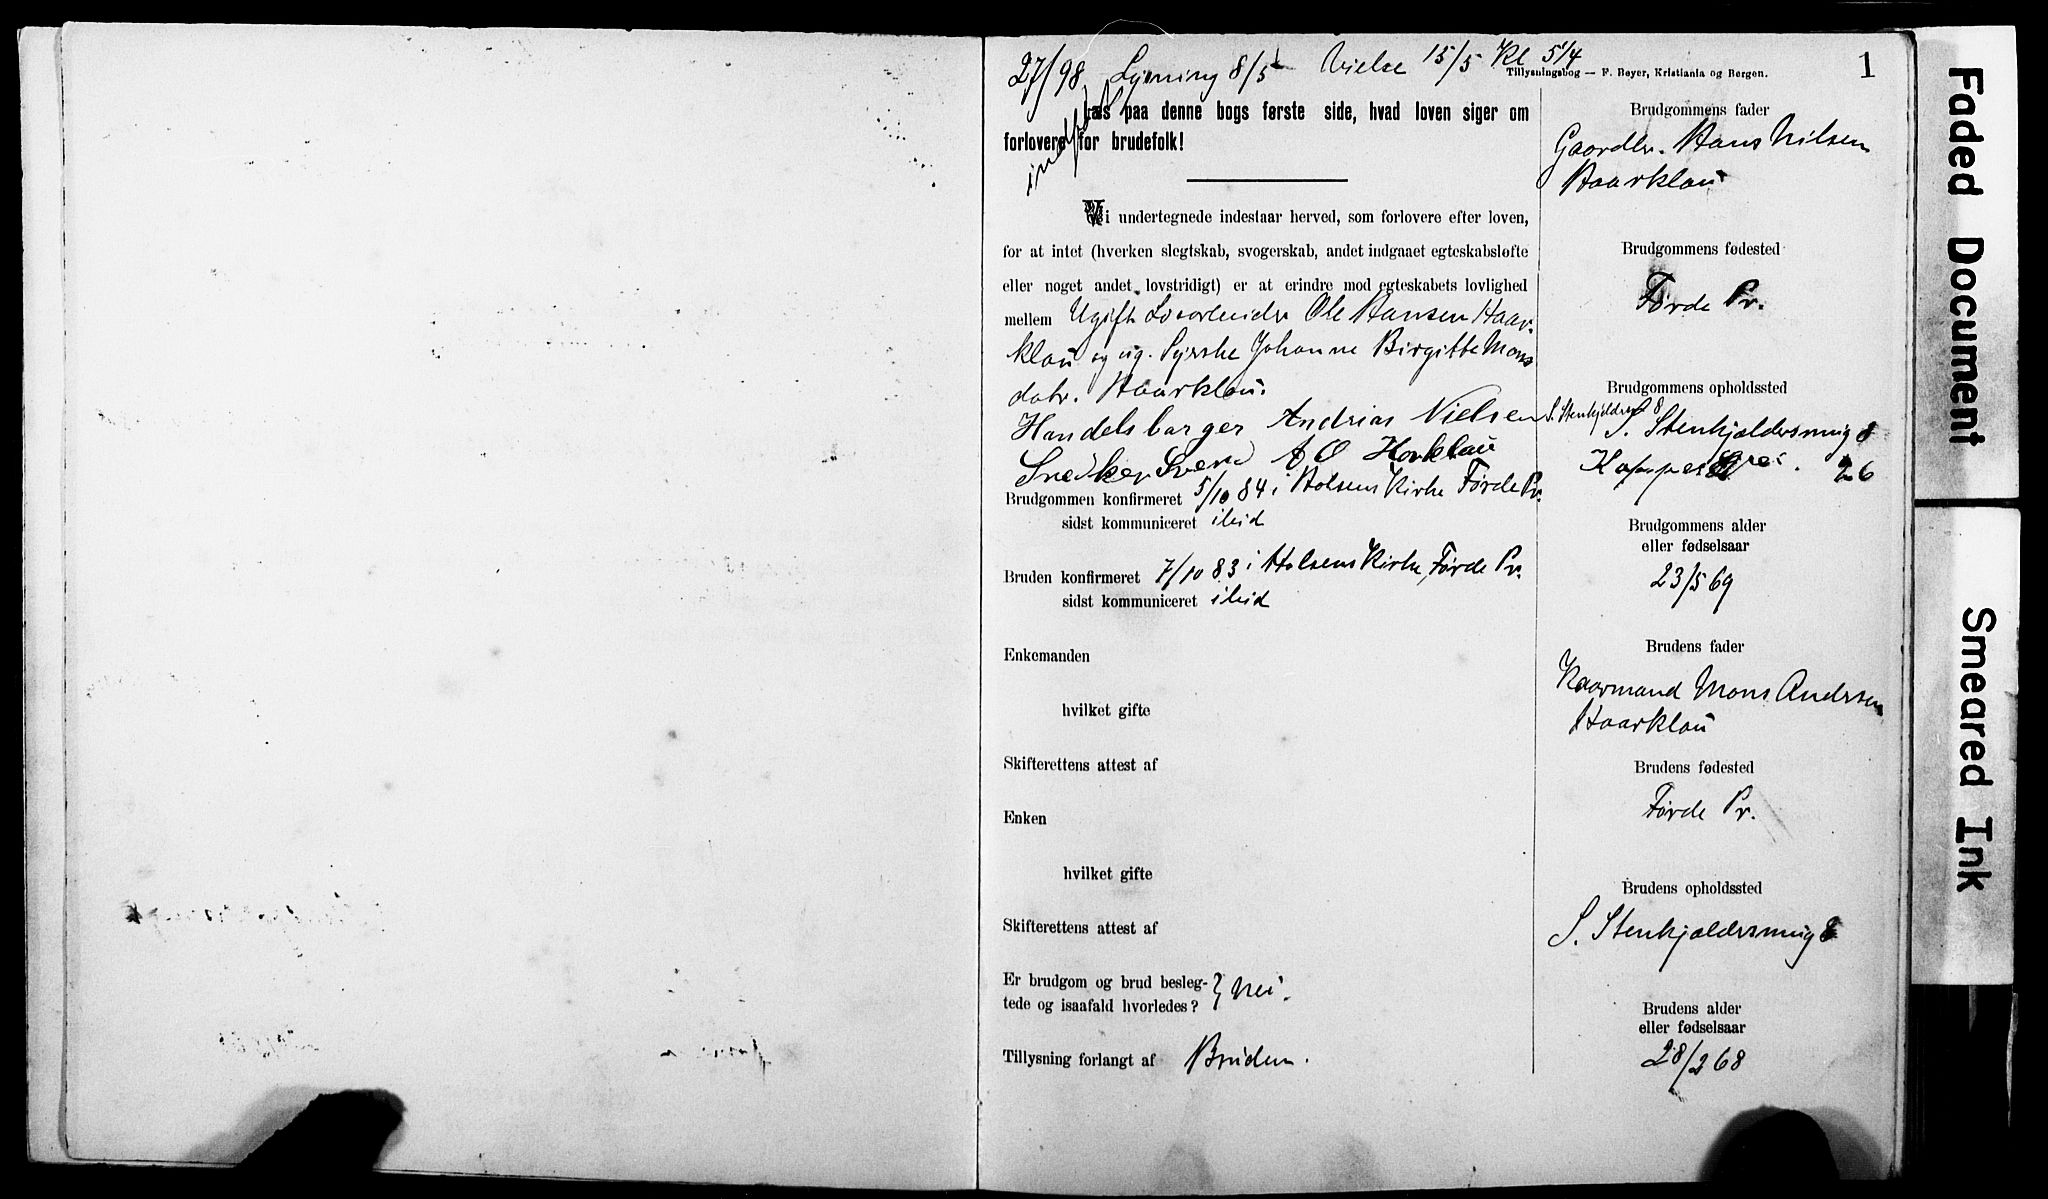 27/98 Lysning 8/5 Vielse 15/5 Kl 5 1/4
1
Tillysningsbog — F. Beyer, Kristiania og Bergen.
indført
Læs paa denne bogs første side, hvad loven siger om
forlovere for brudefolk!
Vi undertegnede indestaar herved, som forlovere efter loven,
for at intet (hverken slegtskab, svogerskab, andet indgaaet egteskabsløfte
eller noget andet lovstridigt) er at erindre mod egteskabets lovlighed
mellem Ugift Ole Hansen Haar-
klau og ug. Syerske Johanne Birgitte Mons
datr. Haarklau.
Handelsborger Andrias Nielsen S. Stenkjeldersm 8
Snedker Svend A O Horklau Kappes 26
Brudgommen konfirmeret 5/10 84 i Holsens Kirke Førde Pr.
sidst kommuniceret ibid
Bruden konfirmeret 7/10 83 i Holsens Kirke, Førde Pr.
sidst kommuniceret ibid
Enkemanden
hvilket gifte
Skifterettens attest af
Enken
hvilket gifte
Skifterettens attest af
Er brudgom og brud besleg-
tede og isaafald hvorledes? } Nei.
Tillysning forlangt af Bruden.
Brudgommens fader
Gaardbr. Hans Nilsen
Haarklau
Brudgommens fødested
Førde Pr.
Brudgommens opholdssted
S. Stenkjeldersmug 8
Brudgommens alder
eller fødselsaar
23/5 69
Brudens fader
Kaarmand Mons Andersen
Haarklau
Brudens fødested
Førde Pr.
Brudens opholdssted
S. Stenkjeldersmug 8
Brudens alder
eller fødselsaar
28/2 68
Faded Document
Smeared Ink